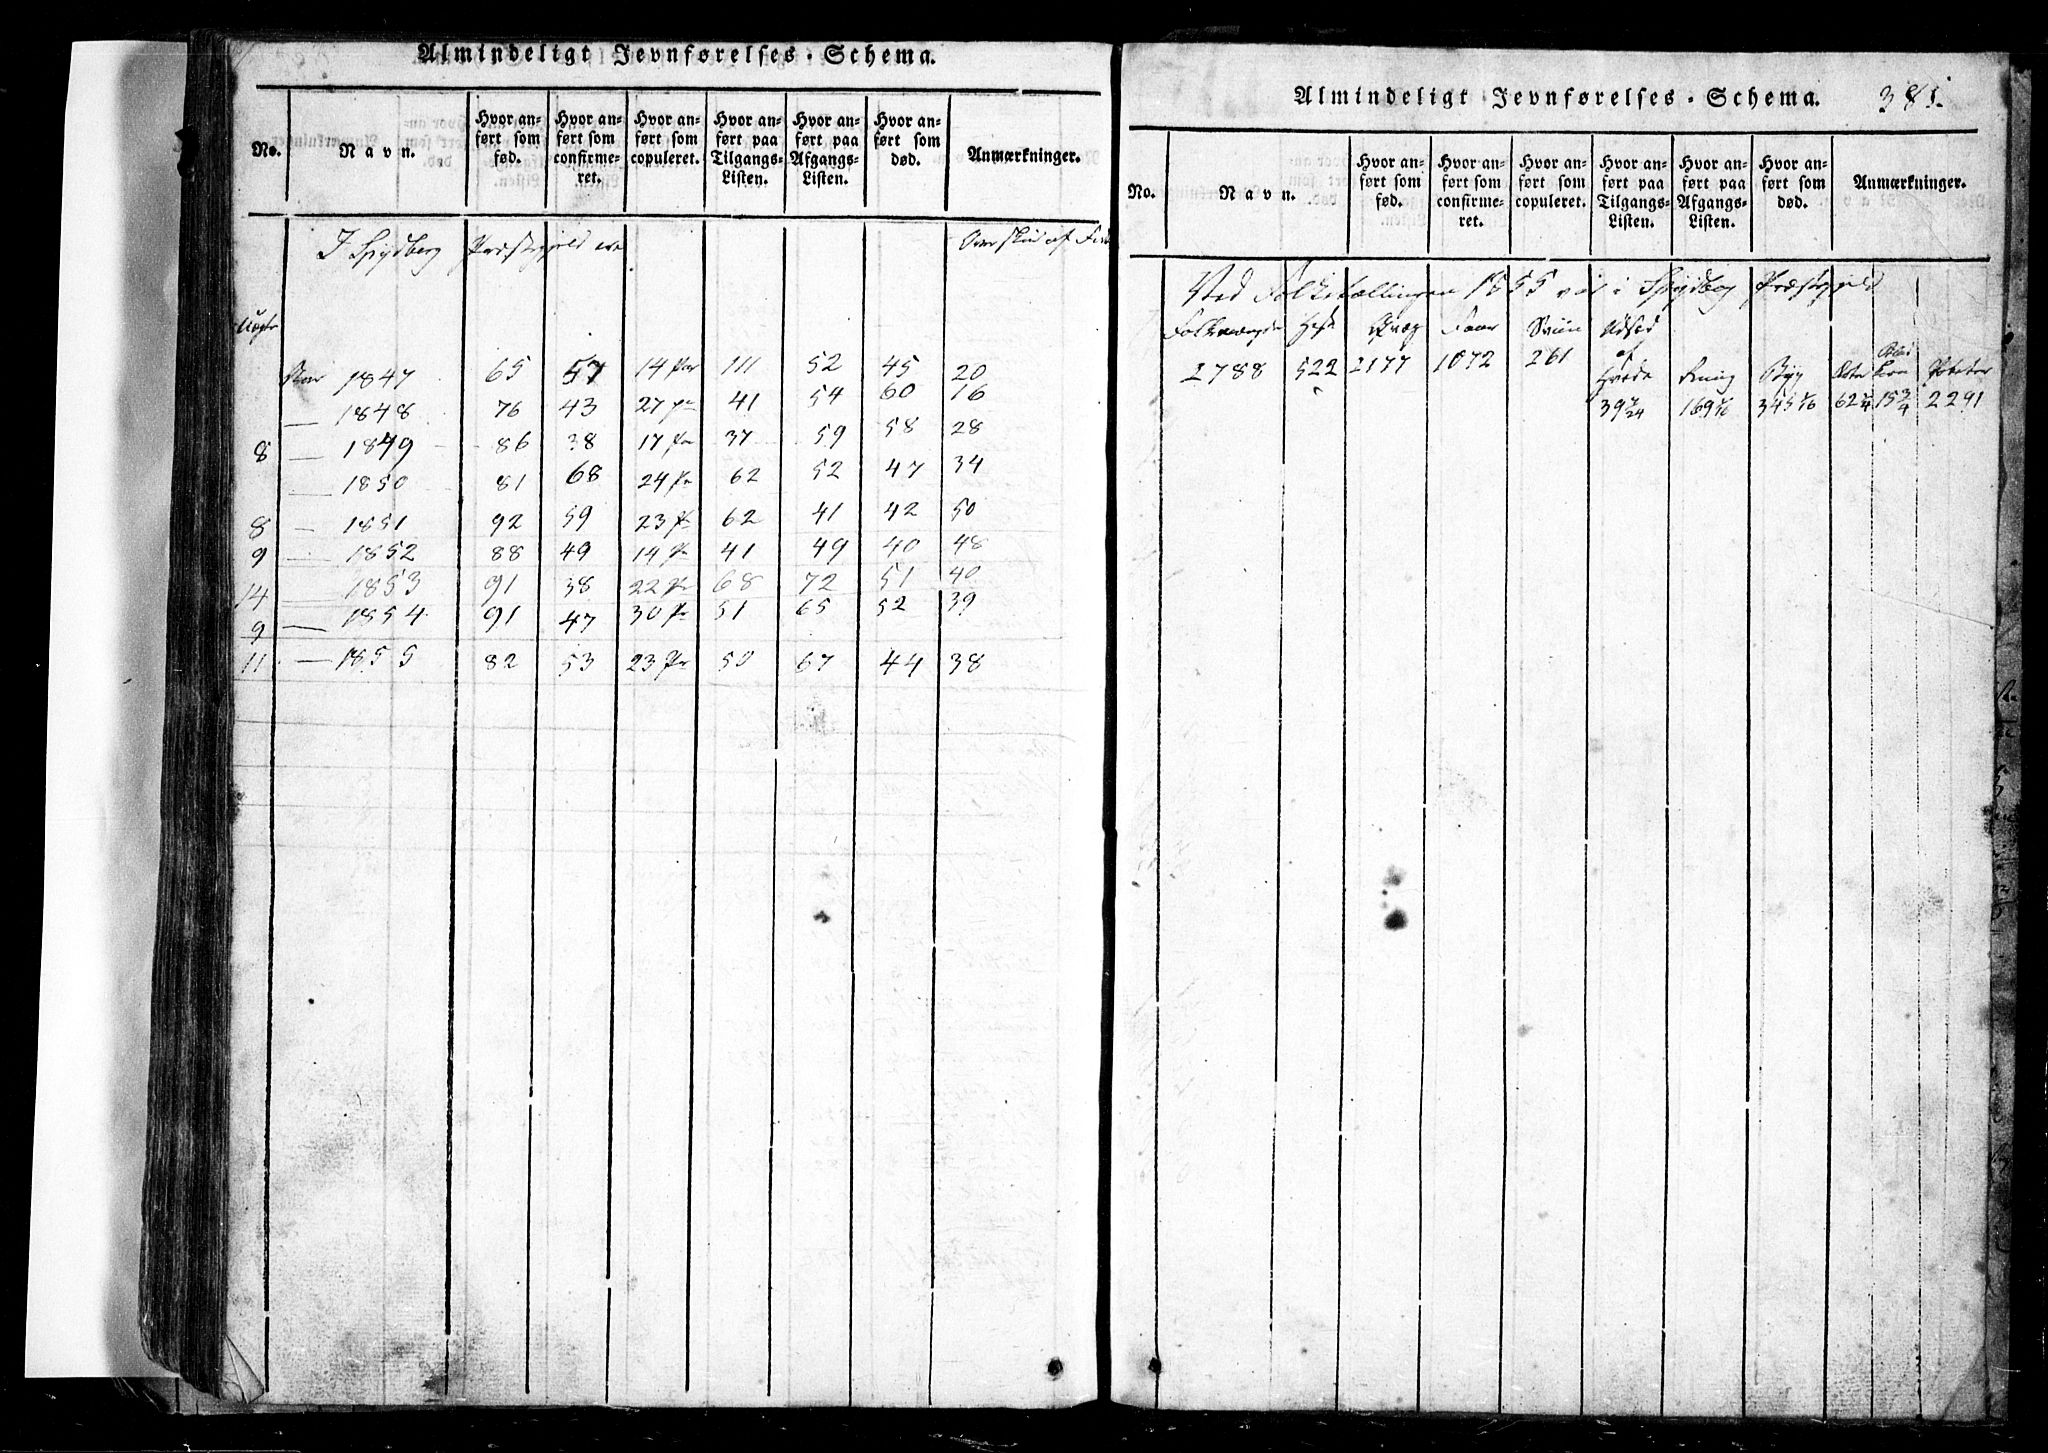 Almindeligt Jevnførelses-Schema.
No. Navn. Hvor anført som fød. Hvor anført som confirmeret. Hvor anført som copuleret. Hvor anført paa Tilgangs-Listen. Hvor anført paa Afgangs-Listen. Hvor anført som død. Anmærkninger.
I Spydberg Præstegjeld ere Overskud af
Uægte
1847 65 57 14 Par 111 52 45 20
— 1848 76 43 27 41 54 60 16
8 — 1849 86 38 17 Par 37 59 58 28
— 1850 81 68 24 Pr 62 52 47 34
8 — 1851 92 59 23 Pr 62 41 42 50
9 — 1852 88 49 14 Pr 41 49 40 48
14 — 1853 91 38 22 Pr 68 72 51 40
9 — 1854 91 47 30 Pr 51 65 52 39
11 — 1855 82 53 23 Pr 50 67 44 38
Almindeligt Jevnførelses-Schema. 381.
No. Navn. Hvor anført som fød. Hvor anført som confirmeret. Hvor anført som copuleret. Hvor anført paa Tilgangs-Listen. Hvor anført paa Afgangs-Listen. Hvor anført som død. Anmærkninger.
Ved Folketællingen 1855 var i Spydberg Præstegjeld
Folkemængde Heste Qvæg Faar Sviin Udsæd
2788 522 2177 1072 261 af
Hvede Rug Byg Poteter
39 169 345 62 15 3/4 2291